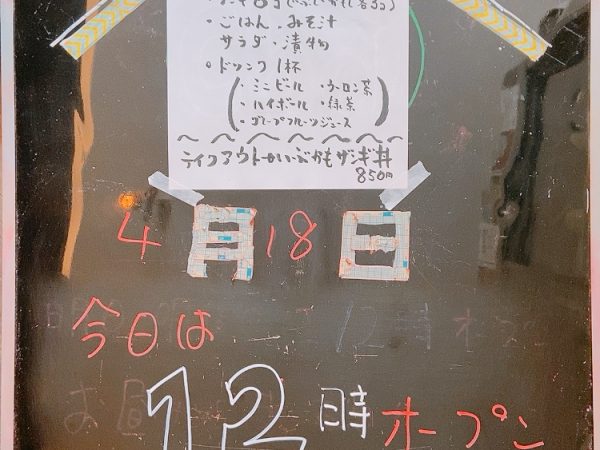 ・ごはん・みそ汁
サラダ・漬物
○ドリンク1杯
・ミニビール ・ウーロン茶
・ハイボール ・緑茶
・グレープフルーツジュース
850円
4月18日
今日は
12時オープン